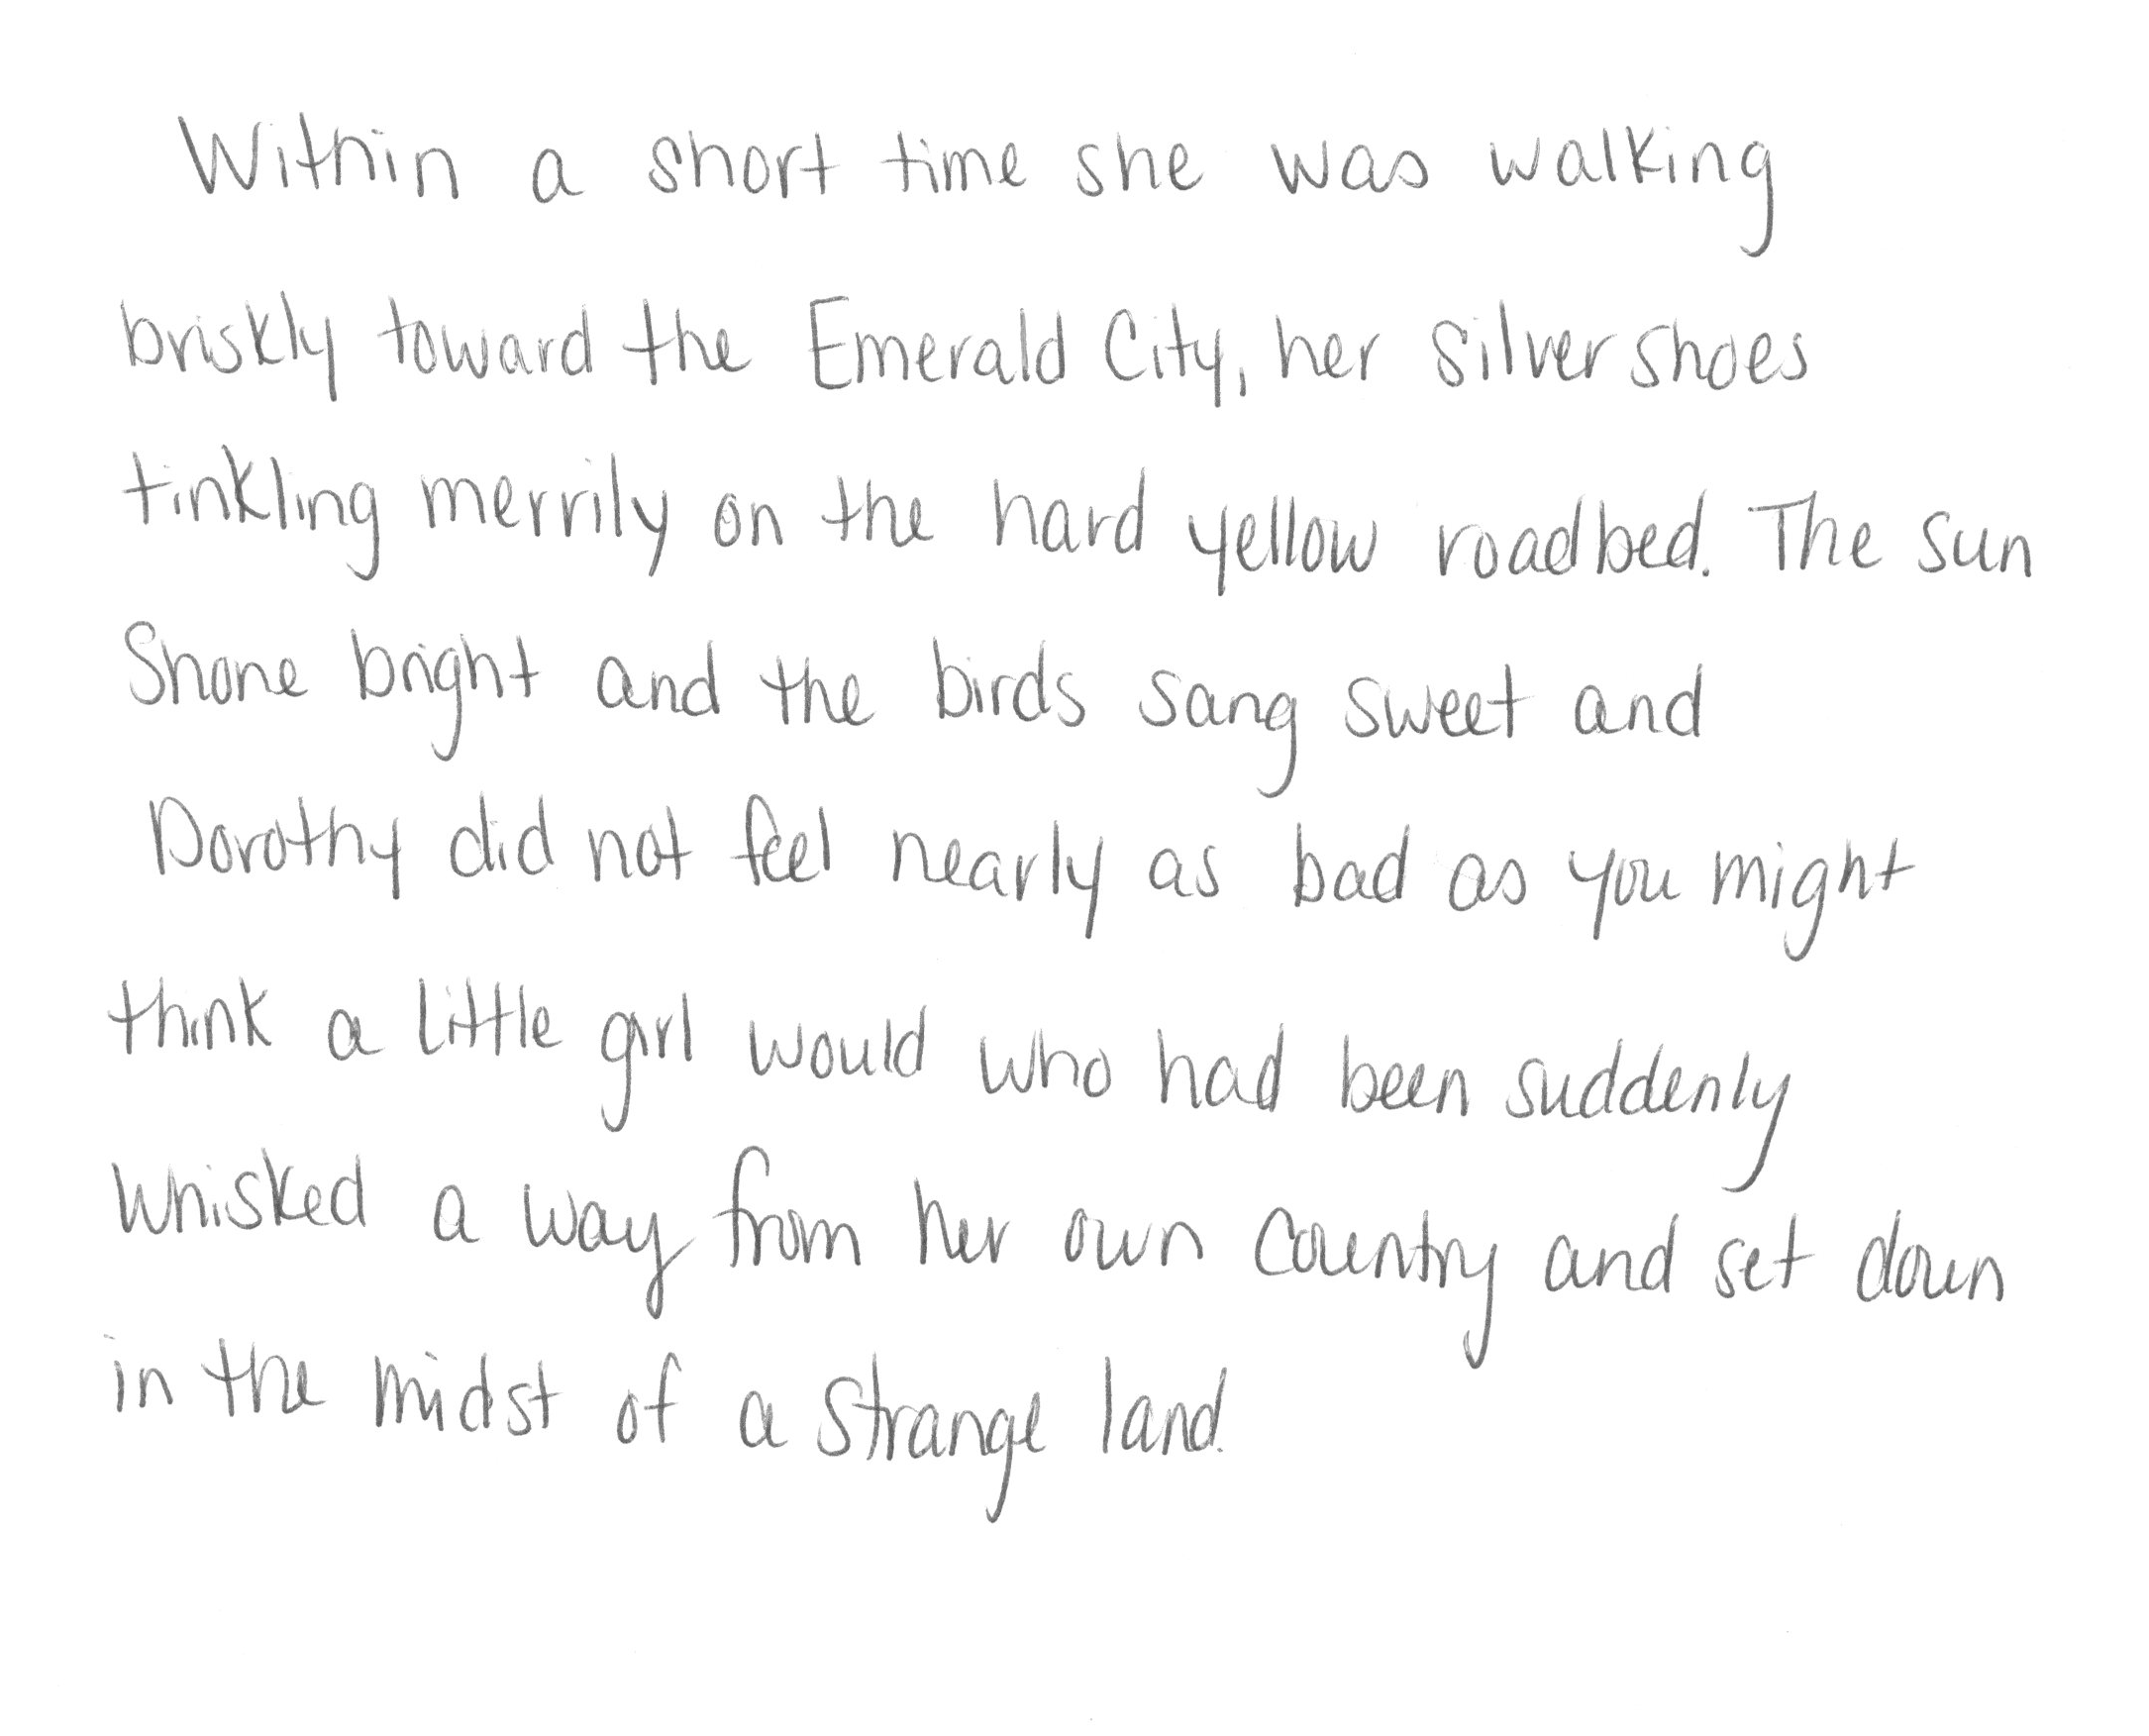 Within a short time she was walking
briskly toward the Emerald City, her silver shoes
tinkling merrily on the hard yellow roadbed. The sun
Shone bright and the birds sang sweet and
Dorothy did not feel nearly as bad as you might
think a little girl would who had been suddenly
whisked a way from her own country and set down
in the midst of a strange land.